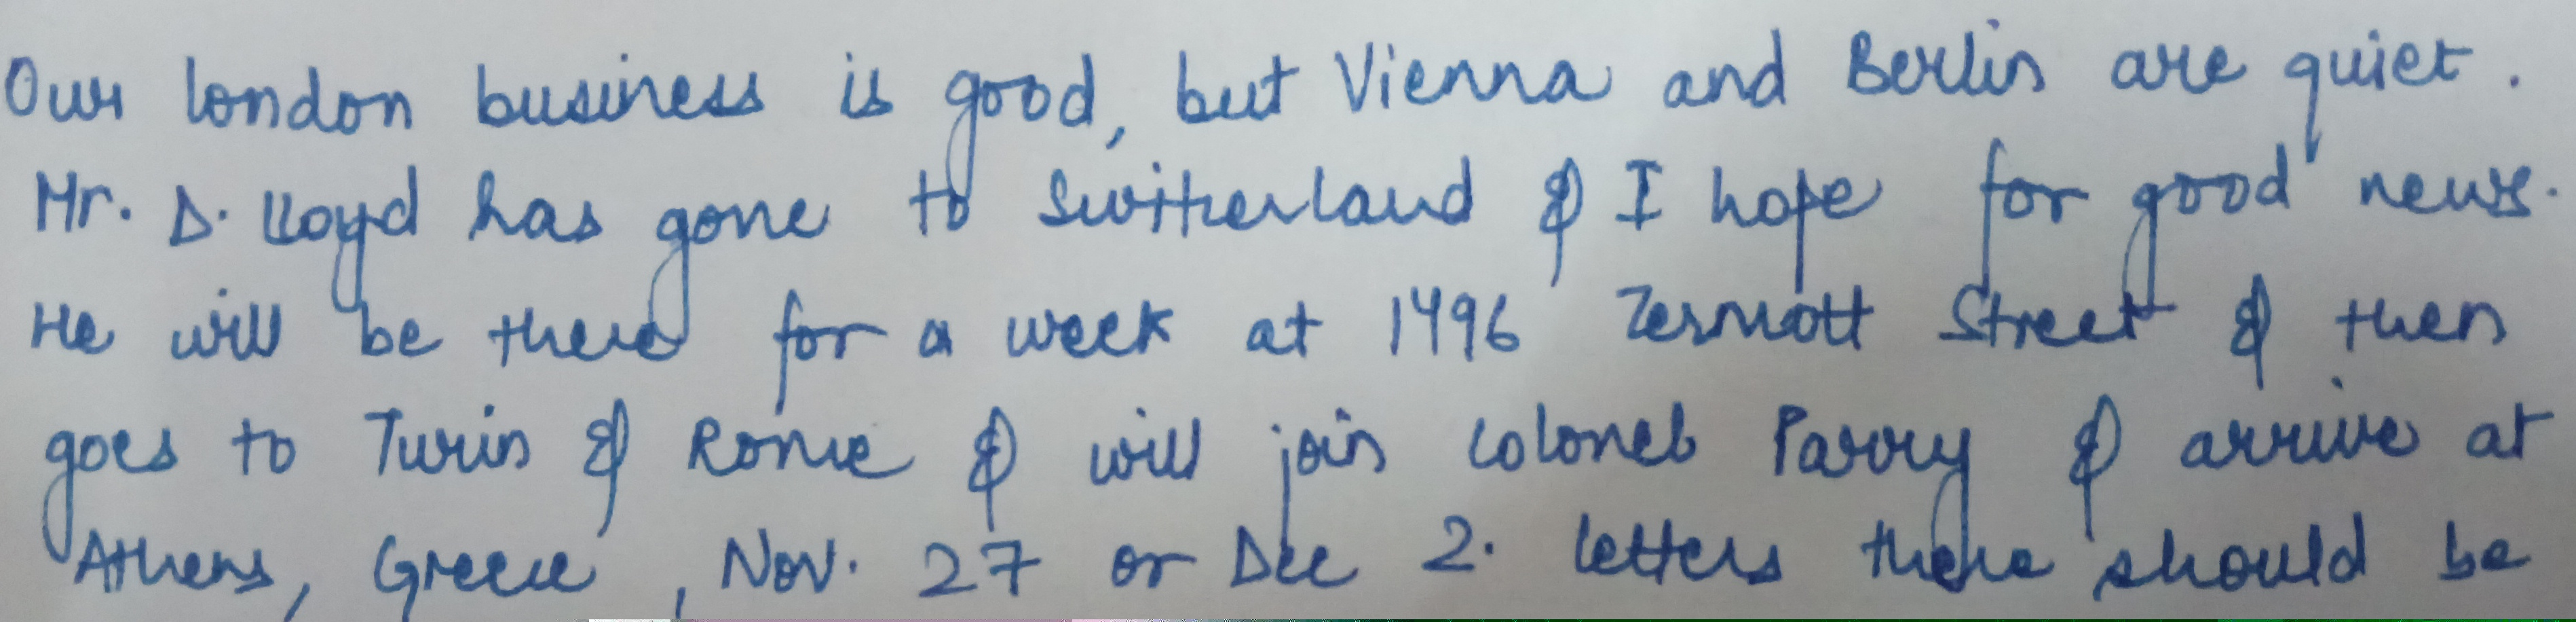 Our london business is good, but Vienna and Berlin are quiet.
Mr. D. Lloyd has gone to Switherland & I hope for good news.
He will be there for a week at 1496 Zermott Street & then
goes to Turin & Rome & will join colonel Parry & arrive at
Athens, Greece, Nov. 27 or Dec 2. letters there should be